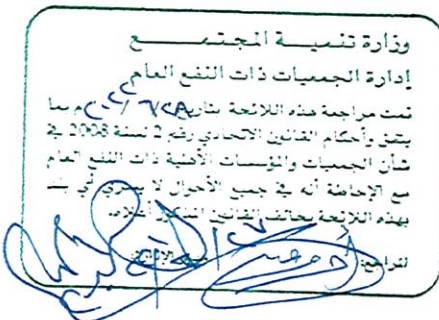 وزارة تنميـــة المجتمـــــــع
إدارة الجمعيات ذات النفع العام
تمت مراجعة هذه اللائحة بتاريخ م بما
يتفق وأحكام القانون الاتحادي رقم 2 لسنة 2008 في
شأن الجمعيات والمؤسسات الأهلية ذات النفع العام
مع الإحاطة أنه في جميع الأحوال لا يسري أي بند
بهذه اللائحة يخالف القانون المذكور أعلاه.
المراجع: